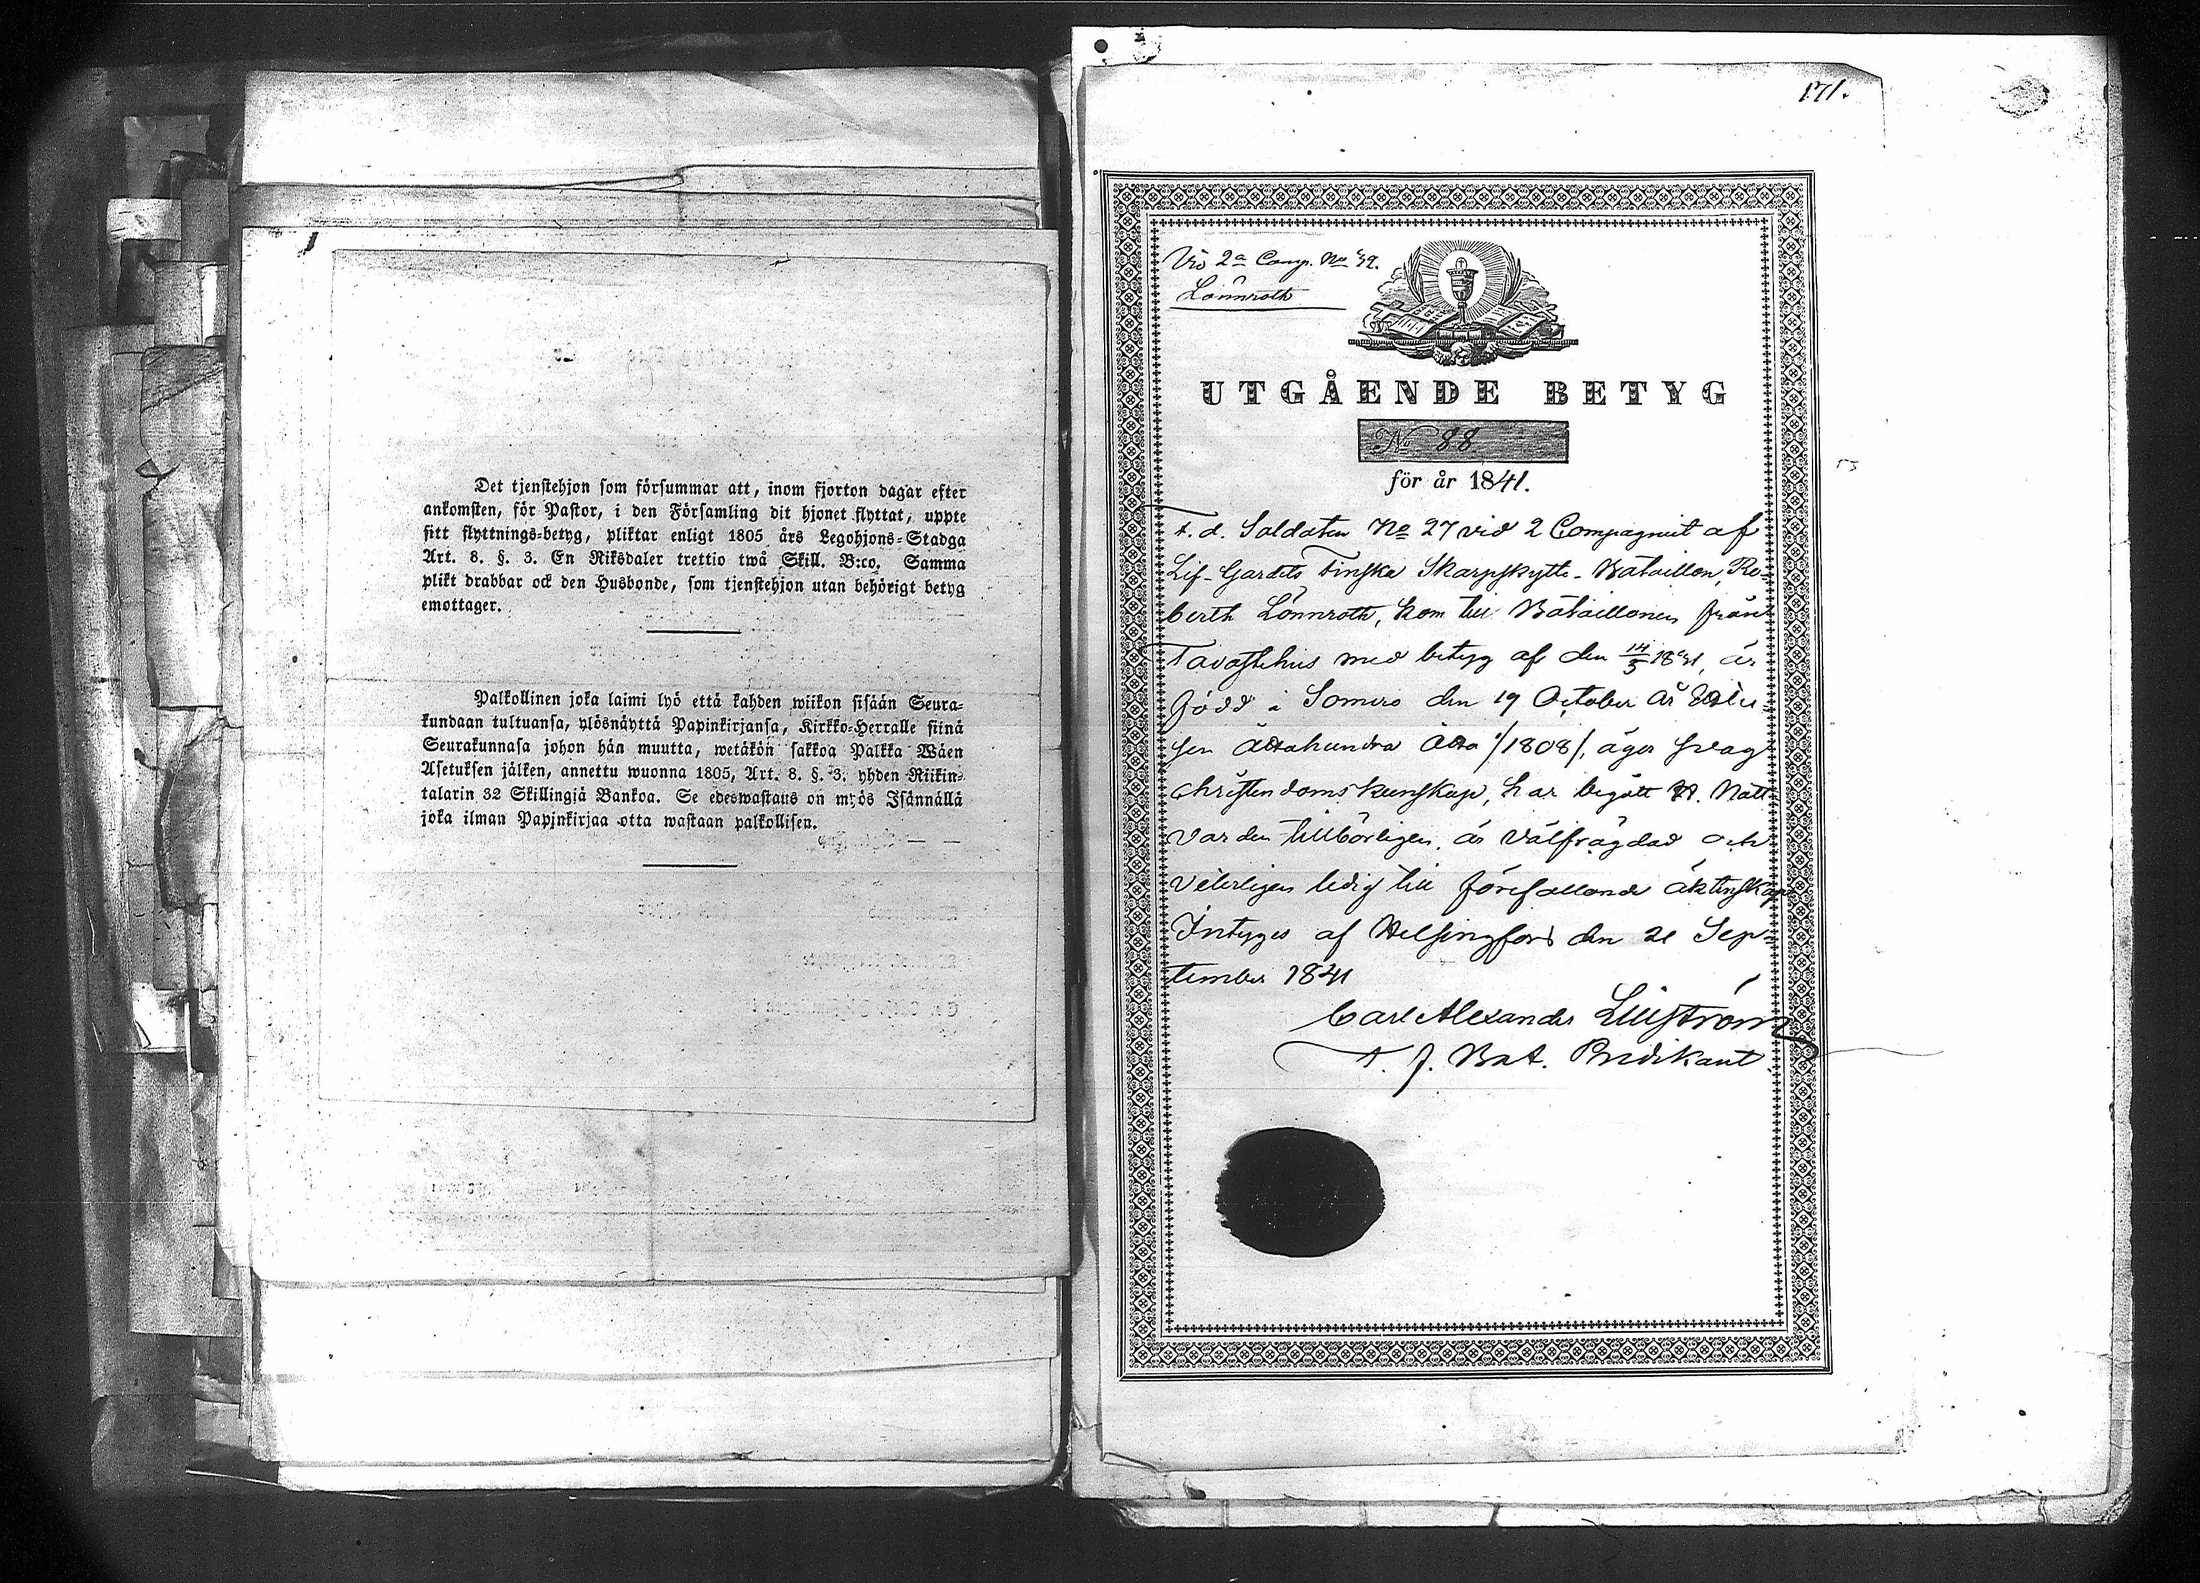 Det tjenstehjon som försummar att, inom fjorton dagar efter
ankomsten, för Pastor, i den Församling dit hjonet flyttat, uppte
sitt flyttnings-betyg, pliktar enligt 1805 års Legohjons-Stadga
Art. 8. §. 3. En Riksdaler trettio twå Skill. B:co. Samma
plikt drabbar ock den Husbonde, som tjenstehjon utan behörigt betyg
emottager.
Palkollinen joka laimi lyö että kahden wiikon sisään Seura-
kundaan tultuansa, ylösnäyttä Papinkirjansa, Kirkko-Herralle siinä
Seurakunnasa johon hän muutta, wetäkön sakkoa Palkka Wäen
Asetuksen jälken, annettu wuonna 1805, Art. 8. §. 3. yhden Riikin-
talarin 32 Skillingjä Bankoa. Se edeswastaus on myös Isännällä
joka ilman Papinkirjaa otta wastaan palkollisen.
171.
Vid 2a Comp. No 39.
Lönnroth
UTGÅENDE BETYG
No 88
för år 1841.
F. d. Soldaten No 27 vid 2 Compagniet af
Lif-Gardets Finska Skarpskytte-Bataillon, Ro-
berth Lönnroth, kom till Bataillonen från
Tavastehus med betyg af den 14/5 1831, är
född i Somero den 19 October år
hundra åtta /1808/, äger svag
christendoms kunskap, har begått H. Natt-
varden tillbörligen, är välfrägdad och
veterligen ledig till förefallande äktenskap
Intygas af Helsingfors den 21 Sep-
tember 1841
Carl Alexander Liljström
T. f. Bat. Predikant.